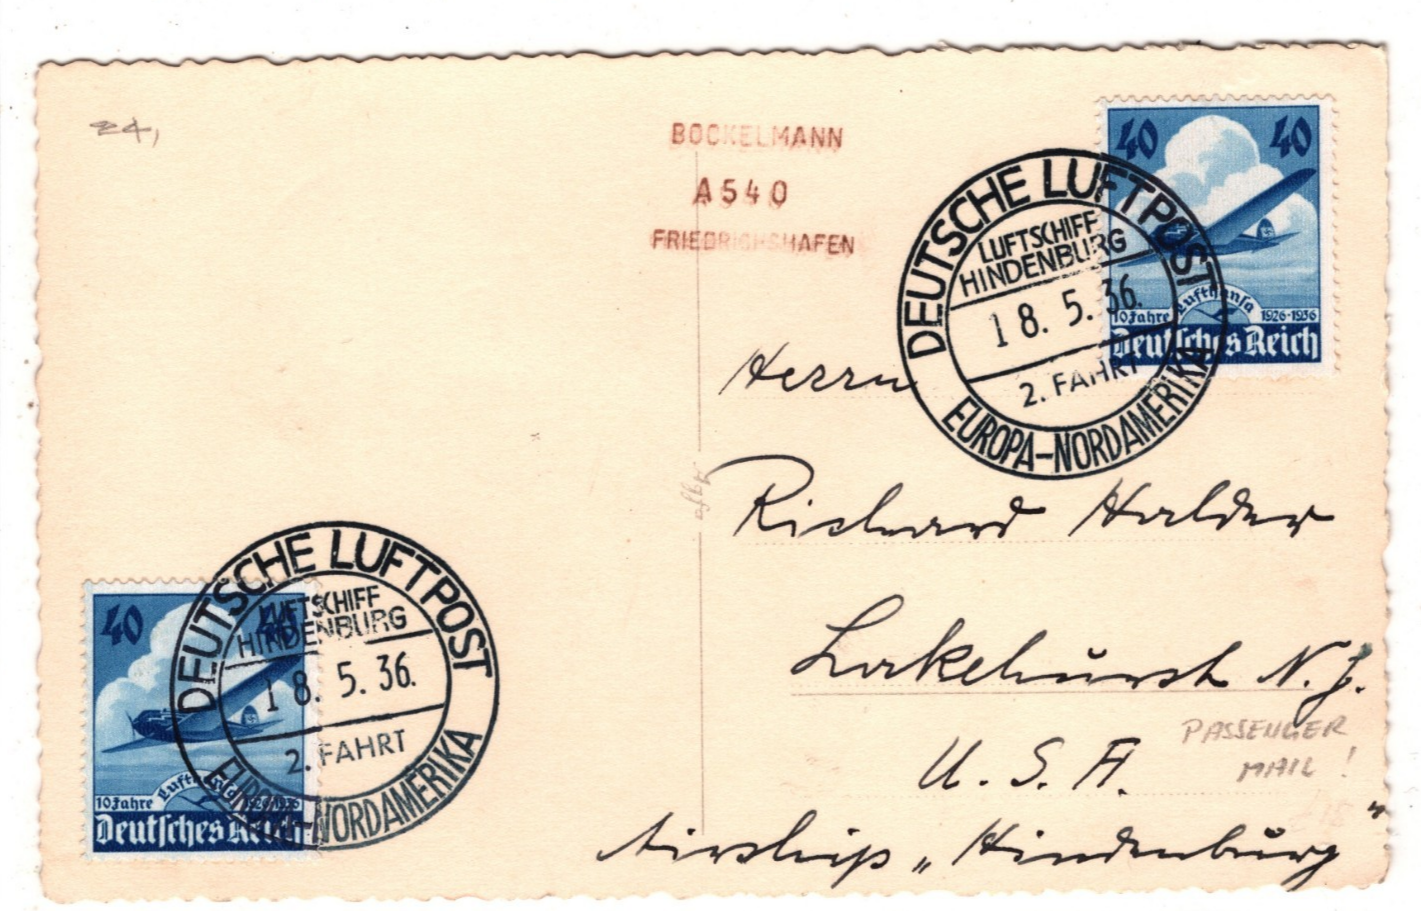 24,
BOCKELMANN
A540
FRIEDRICHSHAFEN
40 40
10 Jahre Lufthansa 1926-1936
Deutsches Reich
DEUTSCHE LUFTPOST
LUFTSCHIFF
HINDENBURG
18.5.36.
2. FAHRT
EUROPA-NORDAMERIKA
Herrn
Richard Halder
Lakehurst N.J.
U.S.A.
PASSENGER
MAIL!
Airship „Hindenburg"
40 40
10 Jahre Lufthansa 1926-1936
Deutsches Reich
DEUTSCHE LUFTPOST
LUFTSCHIFF
HINDENBURG
18.5.36.
2. FAHRT
EUROPA-NORDAMERIKA